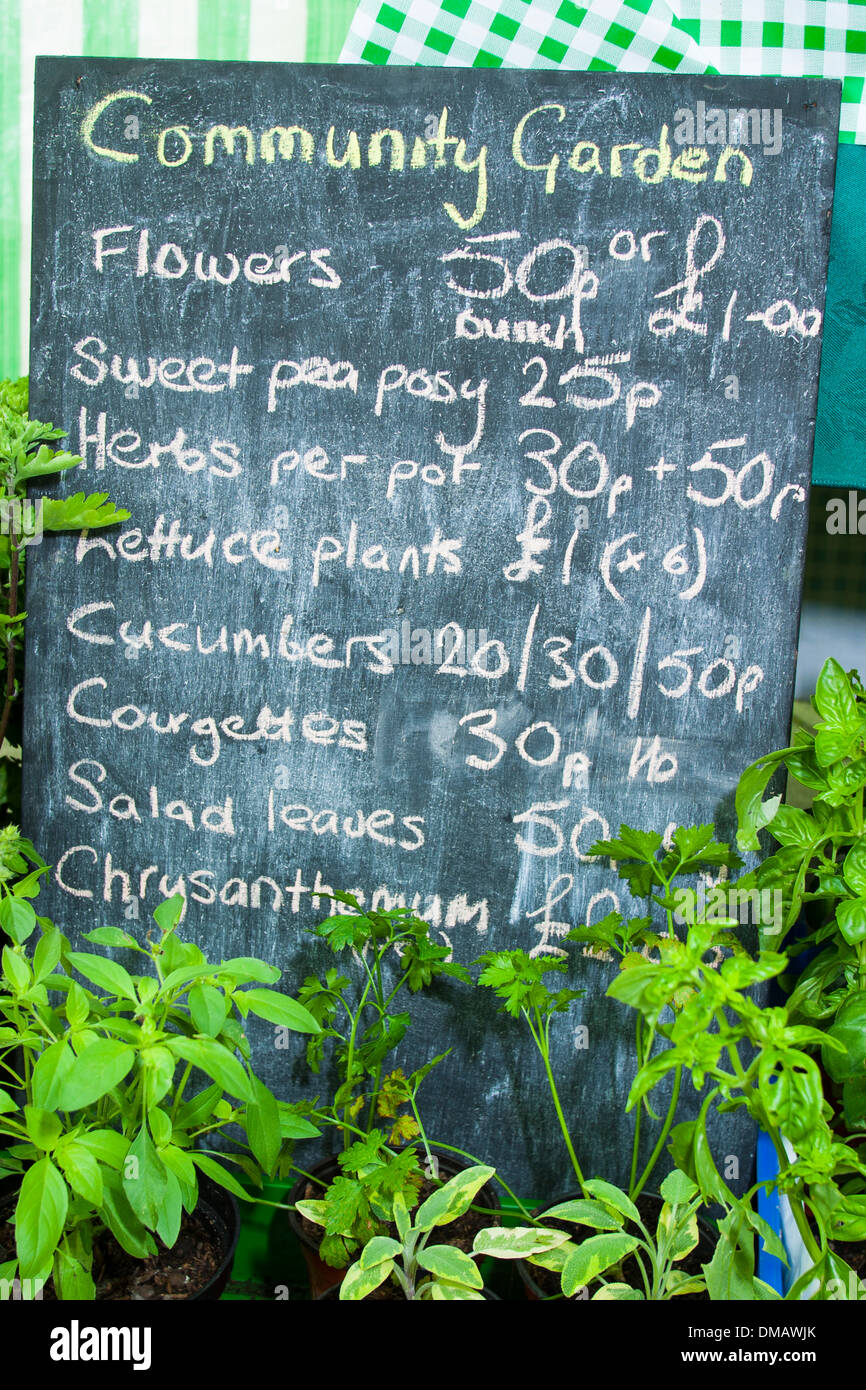 Community Garden
Flowers 50p or £
bunch £1-00
Sweet pea posy 25p
Herbs per pot 30p + 50p
Lettuce plants £1 (x6)
Cucumbers 20/30/50p
Courgettes 30p lb
Salad leaves 50p
Chrysanthemum £
alamy
Image ID: DMAWJK
www.alamy.com